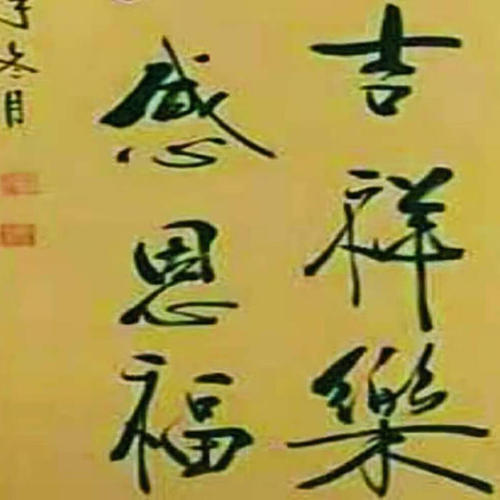 吉祥樂
感恩福
冬月